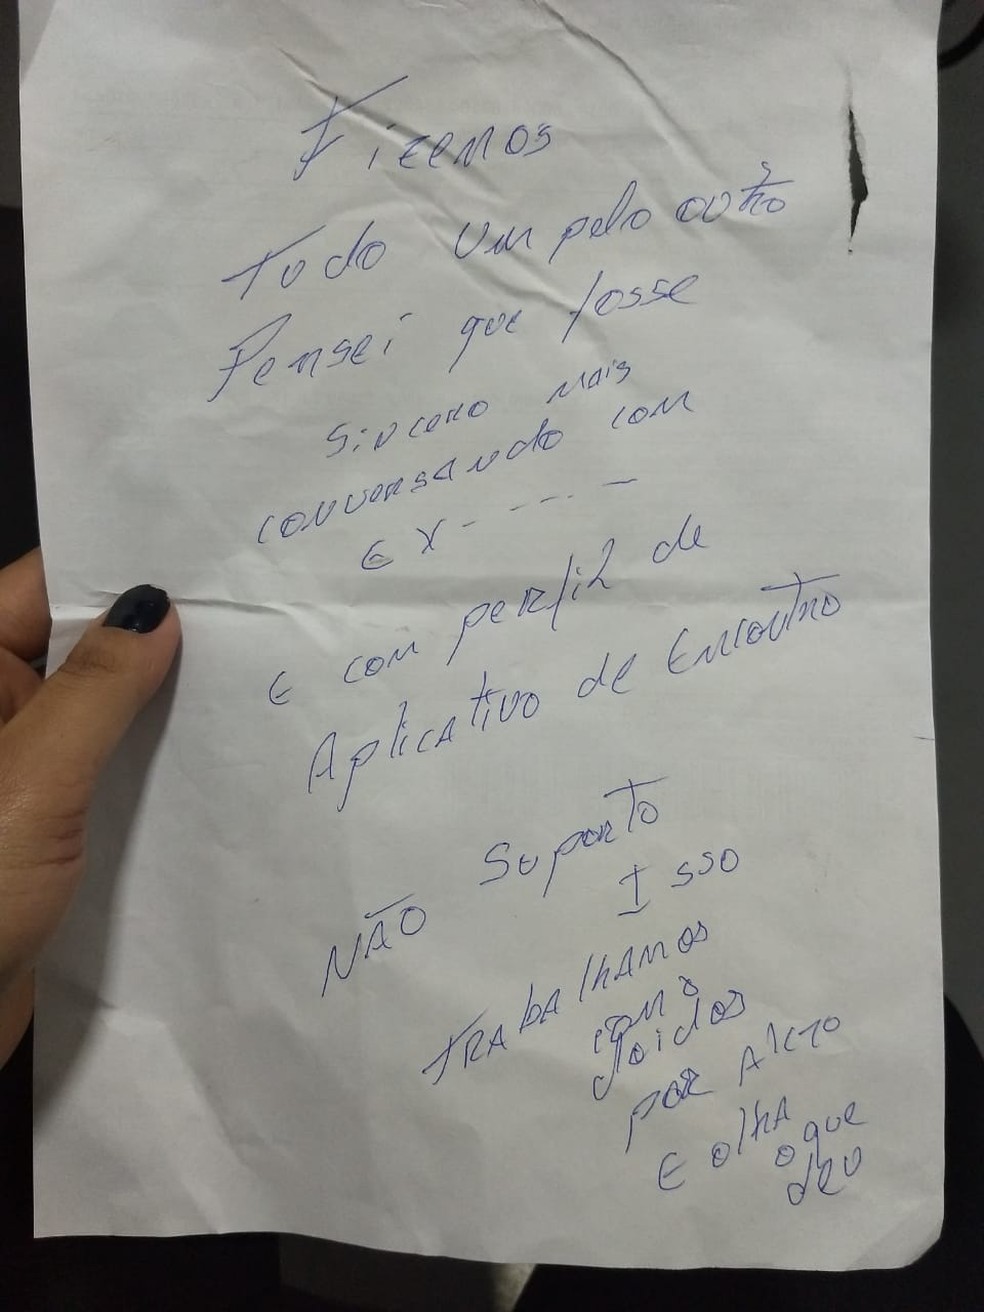 Fizemos
Tudo um pelo outro
Pensei que fosse
sincero mais
conversando com
EX - - - - -
E com perfil de
Aplicativo de Encontro
NÃO Suporto
Isso
TRAbAlhAMOS
como
doidos
por Alcto
E olhA
o que
deu